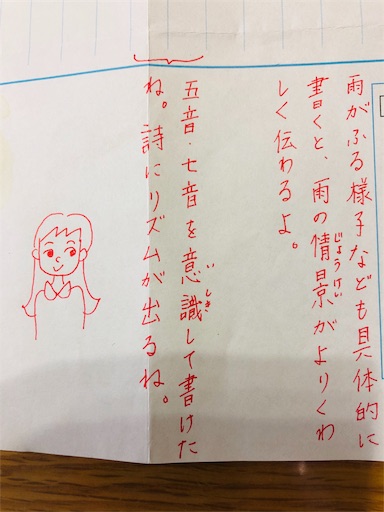 雨がふる様子なども具体的に
書くと、雨の情景がよりくわ
じょうけい
しく伝わるよ。
五音・七音を意識して書けた
いしき
ね。詩にリズムが出るね。